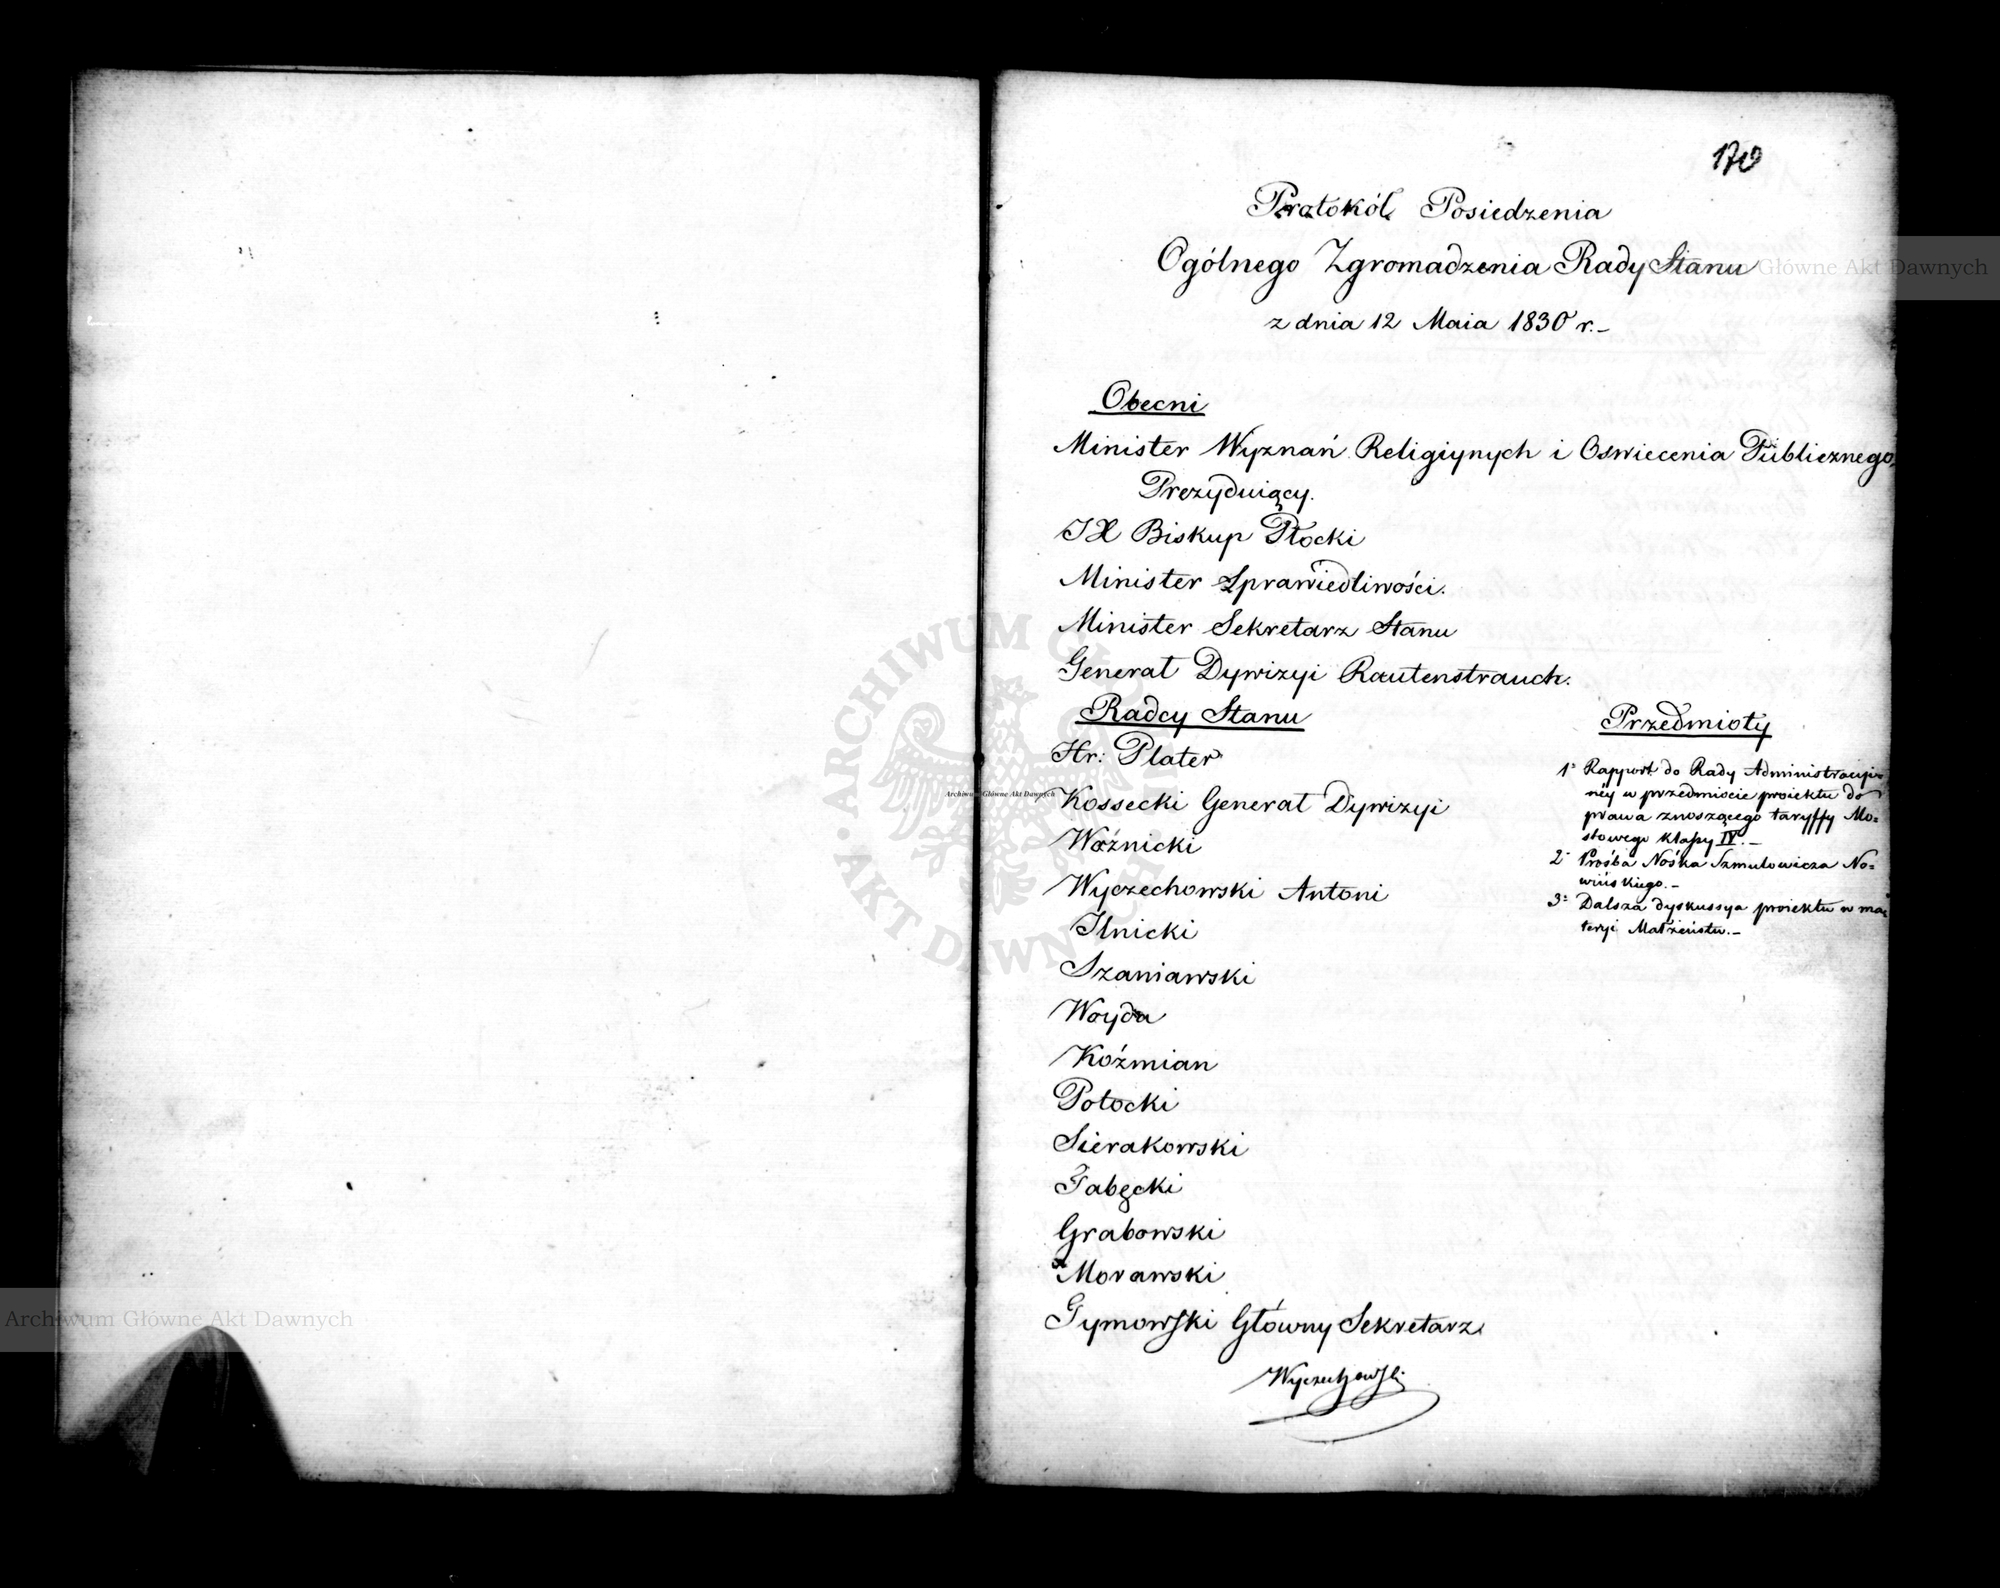 170
Protokół Posiedzenia
Ogólnego Zgromadzenia Rady Stanu
z dnia 12 Maia 1830 r.-
Obecni
Minister Wyznań Religiynych i Oswiecenia Publicznego,
Prezyduiący.
JX Biskup Płocki
Minister Sprawiedliwości.
Minister Sekretarz Stanu
Generał Dywizyi Rautenstrauch.
Radcy Stanu
Hr: Plater
Kossecki Generał Dywizyi
Woźnicki
Wyczechowski Antoni
Ilnicki
Szaniawski
Woyda
Koźmian
Potocki
Sierakowski
Fabęcki
Grabowski
Morawski
Tymowski Główny Sekretarz
Wyczechowski
Przedmioty
1° Rapport do Rady Administracyi-
néy w przedmiocie proiektu do
prawa znoszącego taryffy Mo=
stowego klassy IV.-
2° Prośba Nośka Szmulowicza No=
wińskiego.-
3° Dalsza dyskussya proiektu w ma=
teryi Małżeństw.-
Archiwum Główne Akt Dawnych
ARCHIWUM GŁÓWNE AKT DAWNYCH
Główne Akt Dawnych
Archiwum Główne Akt Dawnych